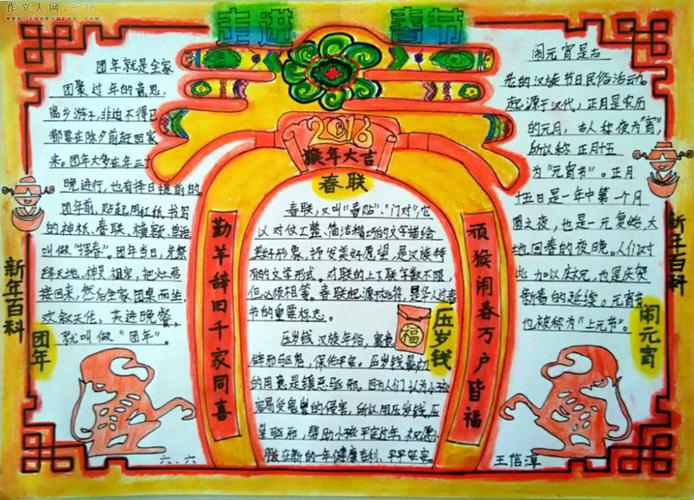 作文人网
走进 春节
2016
猴年大吉
春联
春联,又叫"春贴"、"门对",它
以对仗工整、简洁精巧的文字描绘
美好形象,抒发美好愿望,是汉族特
有的文学形式。对联的上下联字数不限,
但必须相等。春联起源桃符,是华人过春
节的重要标志。
福
压岁钱
压岁钱 汉族年俗,寓意
辟邪驱鬼,保佑平安。压岁钱最初
的用意是镇恶驱邪。因为人们认为小孩
容易受鬼祟的侵害,所以用压岁钱压
祟驱邪,帮助小孩平安过年,祝愿小
孩在新的一年健康吉利、平平安安
勤羊辞旧千家同喜
顽猴闹春万户皆福
团年就是全家
团聚过年的意思,
离乡游子,非迫不得已
都要在除夕前赶回家
来。团年大多在年三十
晚进行,也有择日提前的
团年前,贴起用红纸书写
的神标、春联、横联、单进
叫做"挥春"。团年当日,先祭
拜天地、神灵、祖宗,把灶君
接回来,然后全家团桌而坐,
欢叙天伦,共进晚餐,
就叫做"团年"。
新年百科
团年
六、六
闹元宵是古
老的汉族节日民俗活动。
起源于汉代,正月是农历
的元月,古人称夜为"宵",
所以称正月十五
为"元宵节"。正月
十五日是一年中第一个月
圆之夜,也是一元复始,大
地回春的夜晚。人们对
此加以庆元,也是庆贺
新春的延续。元宵节
也被称为"上元节"。
新年百科
闹元宵
王信淳